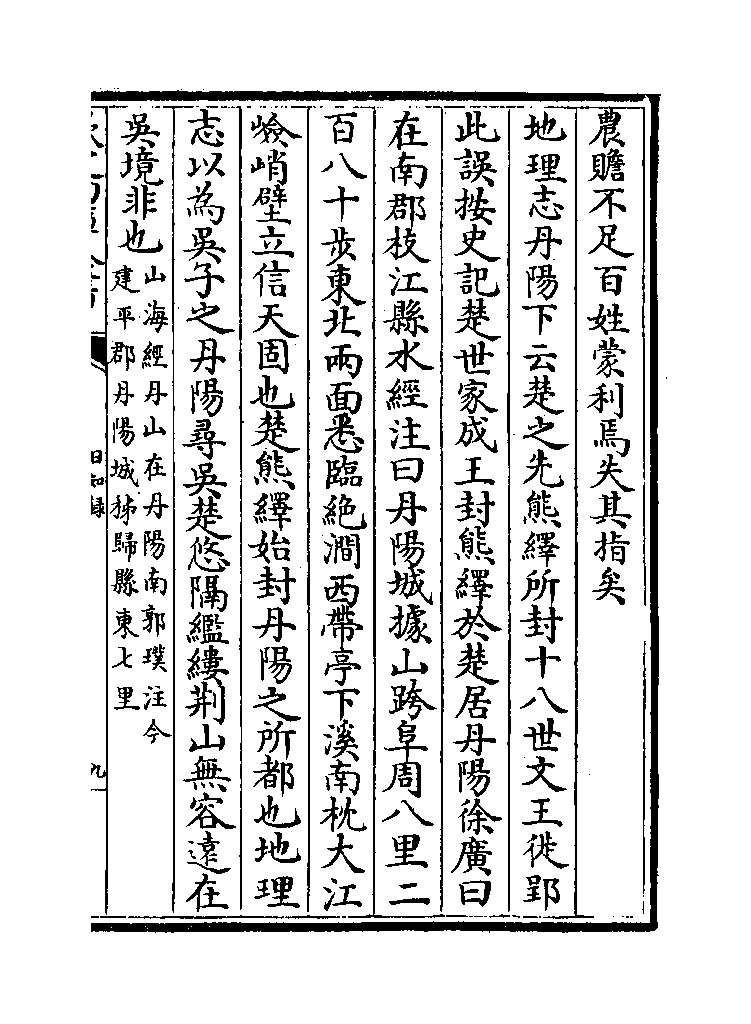 農贍不足百姓蒙利焉失其指矣
地理志丹陽下云楚之先熊繹所封十八世文王徙郢
此誤按史記楚世家成王封熊繹於楚居丹陽徐廣曰
在南郡枝江縣水經注曰丹陽城據山跨阜周八里二
百八十步東北兩面悉臨絶澗西帶亭下溪南枕大江
嶮峭壁立信天固也楚熊繹始封丹陽之所都也地理
志以為吳子之丹陽尋吳楚悠隔繿縷荆山無容逺在
吳境非也
山海經丹山在丹陽南郭璞注今
建平郡丹陽城秭歸縣東七里
日知録
九